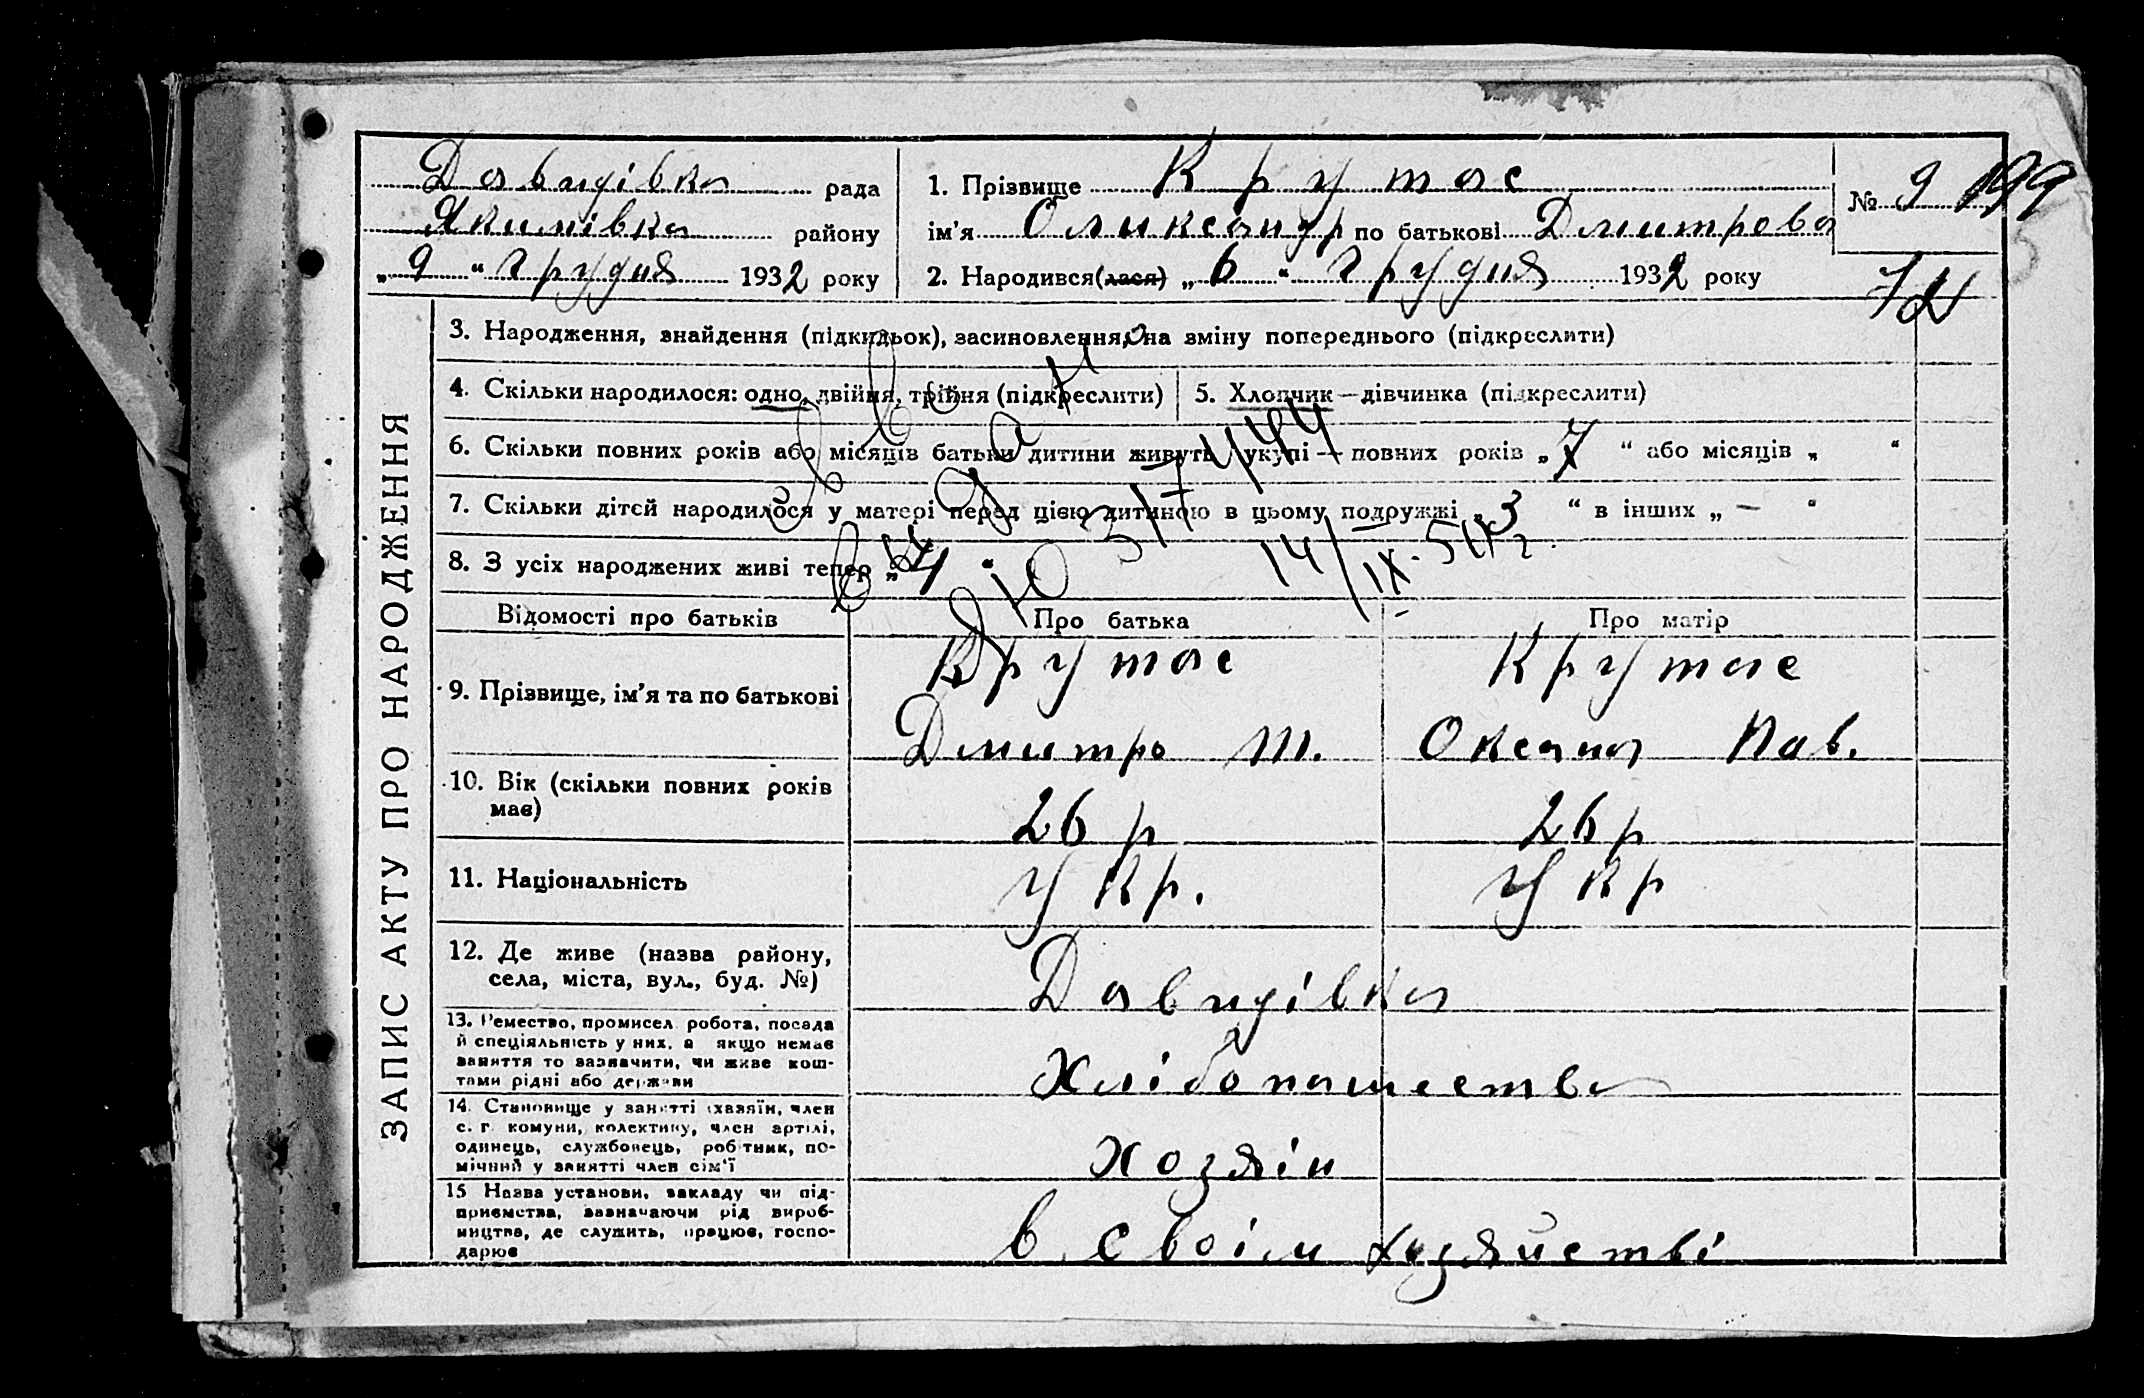 Давидівка рада
Якимівка району
„ 9 “ грудня 1932 року
1. Прізвище Крутас
ім’я Олександр по батькові Дмитрова
2. Народився(лася) „ 6 “ грудня 1932 року
№ 9 199
72
ЗАПИС АКТУ ПРО НАРОДЖЕННЯ
3. Народження, знайдення (підкидьок), засиновлення, на зміну попереднього (підкреслити)
4. Скільки народилося: одно, двійня, трійня (підкреслити)
5. Хлопчик — дівчинка (підкреслити)
6. Скільки повних років або місяців батьки дитини живуть укупі — повних років „ 7 “ або місяців „ “
7. Скільки дітей народилося у матері перед цією дитиною в цьому подружжі „ 3 “ в інших „ — “
8. З усіх народжених живі тепер „ 4 “
Свед. дано
ВЮ 317444
14/IX-51
Відомості про батьків
Про батька
Про матір
9. Прізвище, ім’я та по батькові
Крутас
Дмитро Т.
Крутас
Оксана Пав.
10. Вік (скільки повних років має)
26 р
26 р
11. Національність
Укр.
Укр
12. Де живе (назва району,
села, міста, вул., буд. №)
Давидівка
13. Ремество, промисел, робота, посада
й спеціяльність у них, а якщо немає
заняття то зазначити, чи живе кош-
тами рідні або держави
Хлібопашество
14. Становище у занятті (хазяїн, член
с. г. комуни, колективу, член артілі,
одинець, службовець, робітник, по-
мічний у занятті член сім’ї
Хозяїн
15 Назва установи, закладу чи під-
приємства, зазначаючи рід вироб-
ництва, де служить, працює, госпо-
дарює
в своїм хузяйстві